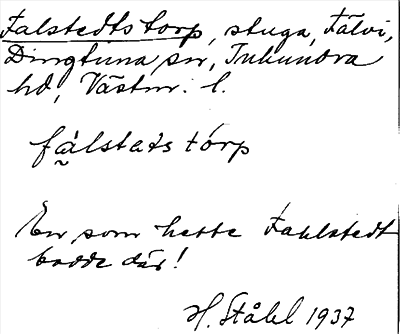 Falstedtstorp, stuga, Fälvi,
Dingtuna sn, Tuhundra
hd, Västm. l.
fa̰lstats tórp
En som hette Fahlstedt
bodde där!
H. Ståhl 1937